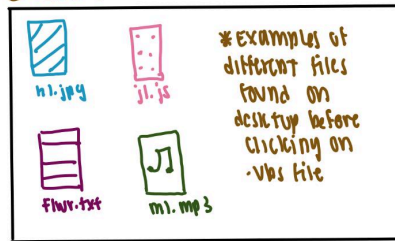 h1.jpg
j1.js
flwr.txt
m1.mp3
* Examples of
different files
found on
desktop before
clicking on
.vbs file